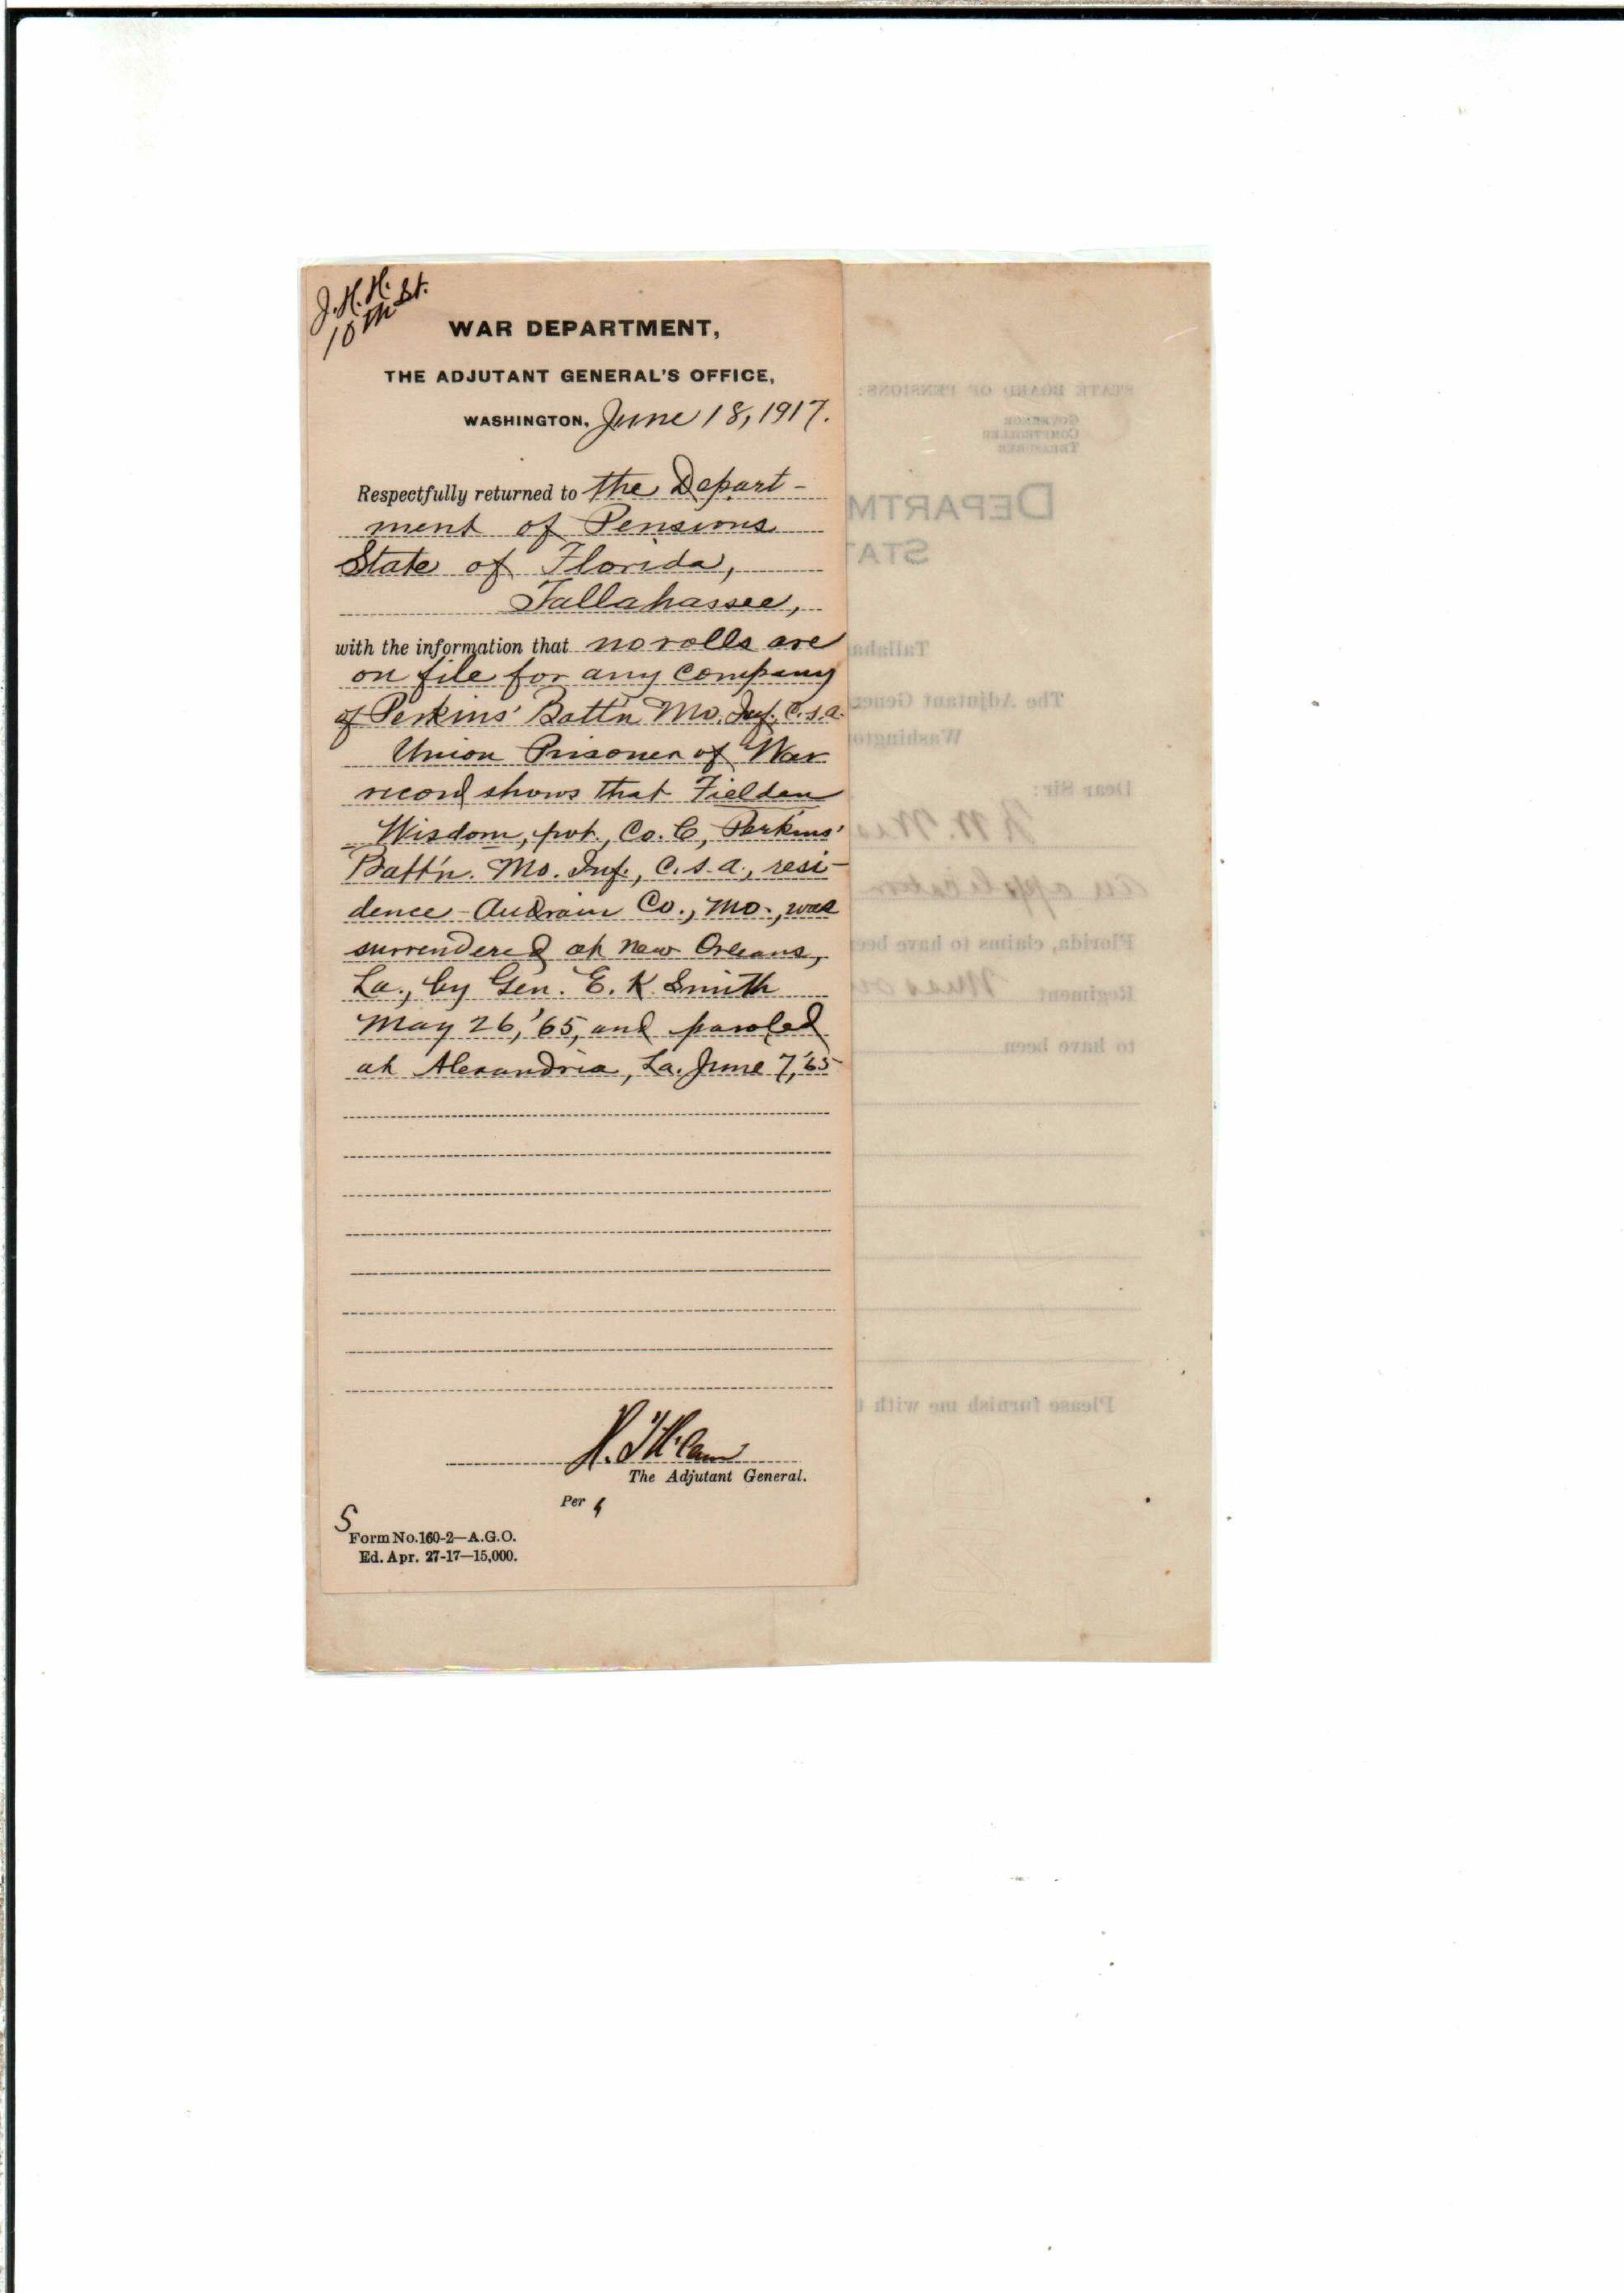 J.H.H.
10th St.
WAR DEPARTMENT,
THE ADJUTANT GENERAL'S OFFICE,
WASHINGTON, June 18, 1917.
Respectfully returned to the Depart-
ment of Pensions
State of Florida,
Tallahassee,
with the information that no rolls are
on file for any company
of Perkins' Batt'n Mo. Inf. C.S.A.
Union Prisoner of War
record shows that Fielden
Wisdom, pvt., Co. C, Perkins'
Batt'n. Mo. Inf., C.S.A., resi-
dence - Audrain Co., Mo., was
surrendered at New Orleans,
La., by Gen. E. K. Smith
May 26, '65, and paroled
at Alexandria, La. June 7, '65
The Adjutant General.
Per
S
Form No. 160-2—A.G.O.
Ed. Apr. 27-17—15,000.
STATE BOARD OF PENSIONS:
GOVERNOR
COMPTROLLER
TREASURER
DEPARTM
STAT
Tallaha
The Adjutant Gener
Washingto
Dear Sir:
an application
Florida, claims to have bee
Regiment
to have been
Please furnish me with t